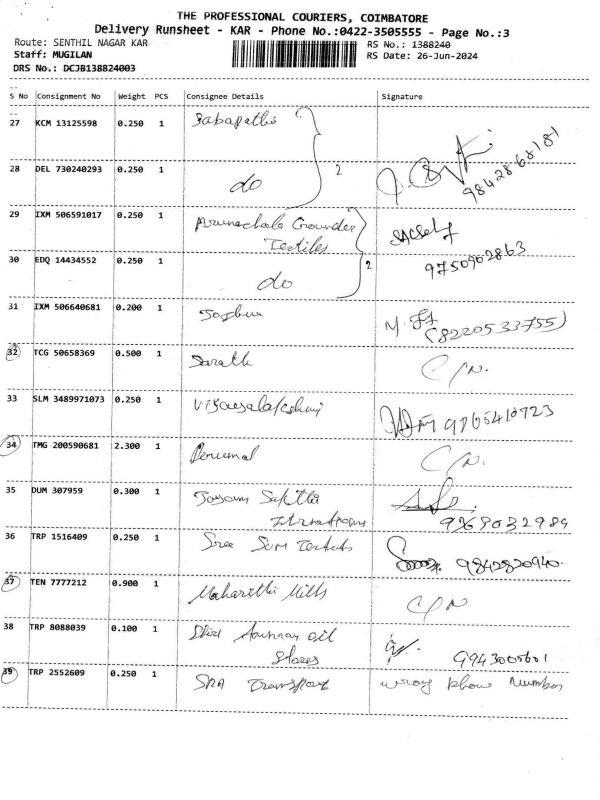 THE PROFESSIONAL COURIERS, COIMBATORE
Delivery Runsheet - KAR - Phone No.:0422-3505555 - Page No.:3
Route: SENTHIL NAGAR KAR RS No.: 1388240
Staff: MUGILAN RS Date: 26-Jun-2024
DRS No.: DCJB138824003
S No Consignment No Weight PCS Consignee Details Signature
27 KCM 13125598 0.250 1 Sabapathi
28 DEL 730240293 0.250 1 do 2 9842868181
29 IXM 506591017 0.250 1 Arunachala Gounder
Textiles
30 EDQ 14434552 0.250 1 do 2 9750902863
31 IXM 506640681 0.200 1 M.
(8220533755)
32 TCG 50658369 0.500 1 Sarath C/N.
33 SLM 3489971073 0.250 1 Vijayalakshmi
34 TMG 200590681 2.300 1 Perumal C/N.
35 DUM 307959 0.300 1 Sakthi
36 TRP 1516409 0.250 1 Sree 9842820940.
37 TEN 7777212 0.900 1 Mills C/N
38 TRP 8088039 0.100 1 oil
Stores 9943005601
39 TRP 2552609 0.250 1 Transport wrong phone Number